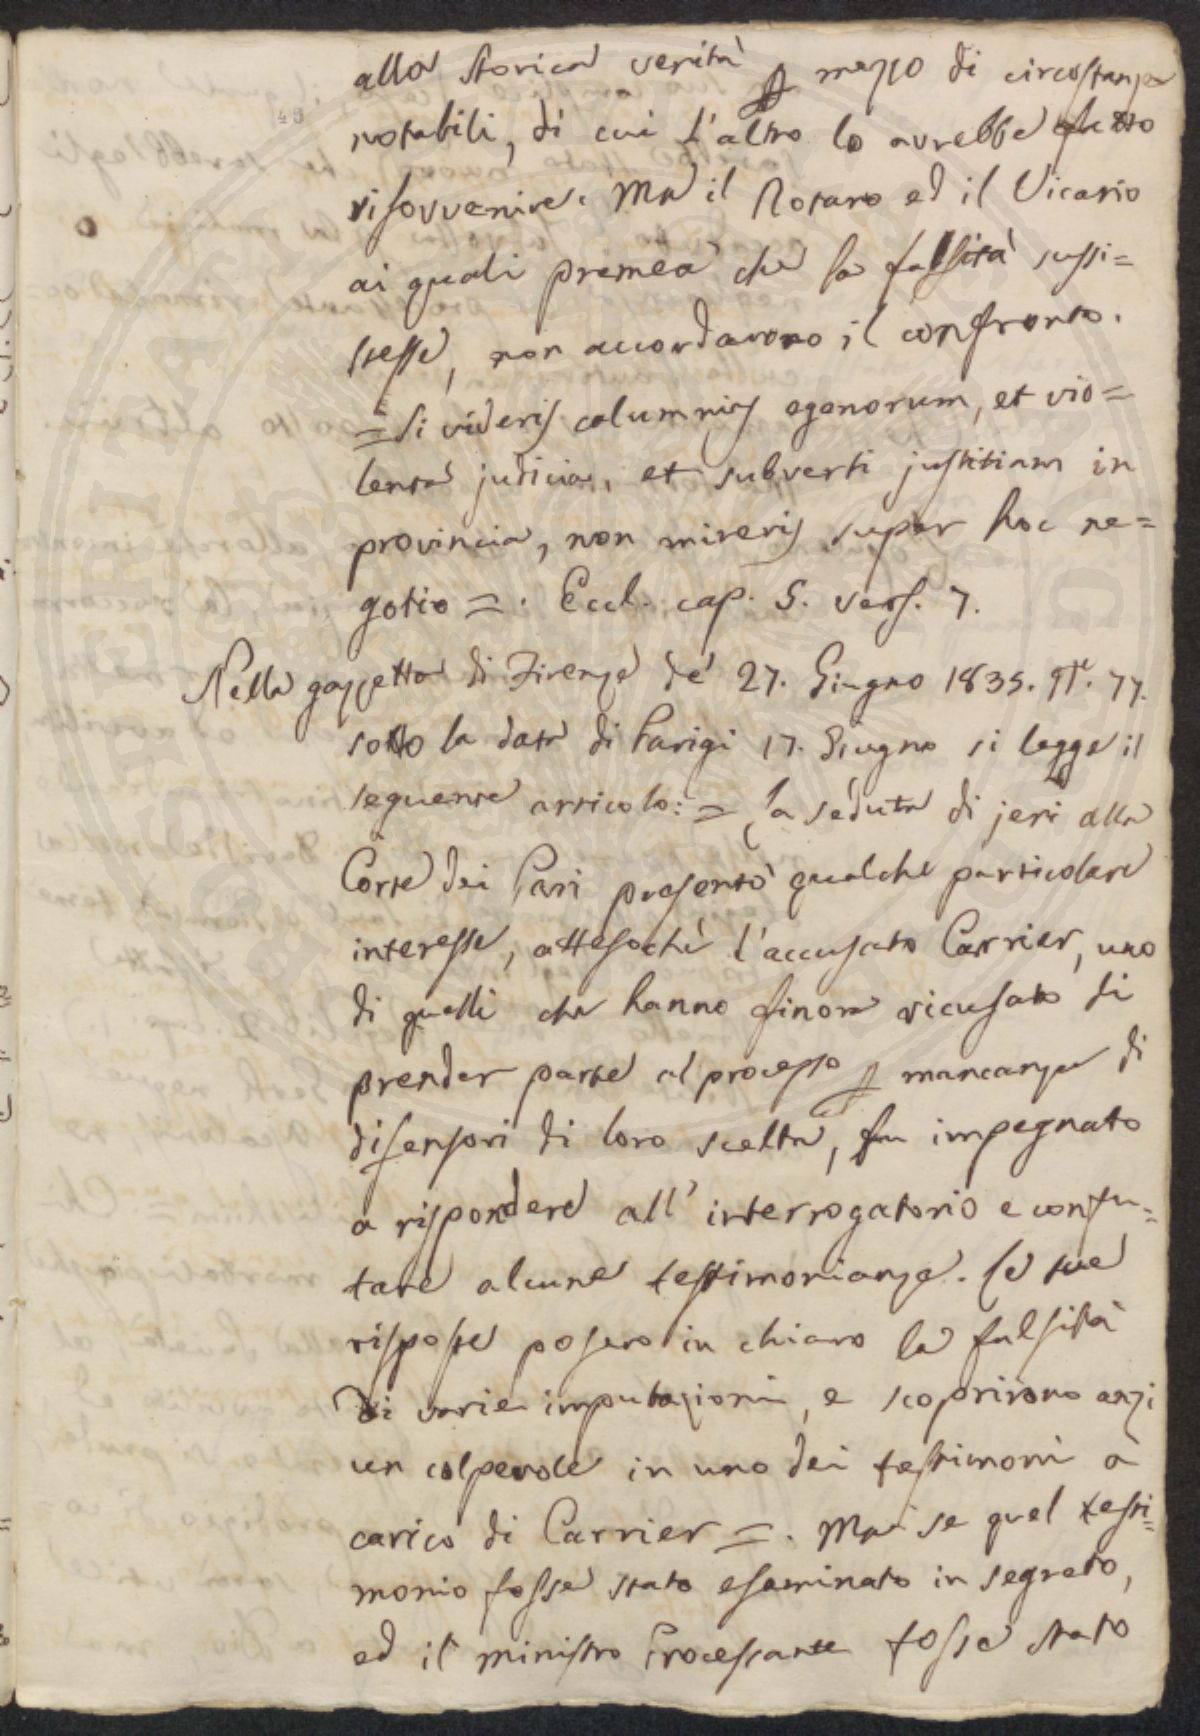 alla storica verità per mezzo di circostanze
notabili, di cui l'altro lo avrebbe fatto
risovvenire. Ma il Notaro ed il Vicario
ai quali premea che la falsità sussi=
stesse, non accordarono il confronto.
= Si videris calumnias egenorum, et vio=
lenta judicia, et subverti justitiam in
provincia, non mireris super hoc ne=
gotio =. Eccl. cap. 5. vers. 7.
Nella gazzetta di Firenze de' 27. Giugno 1835. N.° 77.
sotto la data di Parigi 17. Giugno si legge il
seguente articolo: = La seduta di jeri alla
Corte dei Pari presentò qualche particolare
interesse, attesochè l'accusato Carrier, uno
di quelli che hanno finora ricusato di
prender parte al processo per mancanza di
difensori di loro scelta, fu impegnato
a rispondere all'interrogatorio e confu=
tare alcune testimonianze. Le sue
risposte posero in chiaro la falsità
di varie imputazioni, e scoprirono anzi
un colpevole in uno dei testimoni a
carico di Carrier =. Ma se quel testi=
monio fosse stato esaminato in segreto,
ed il ministro Processante fosse stato